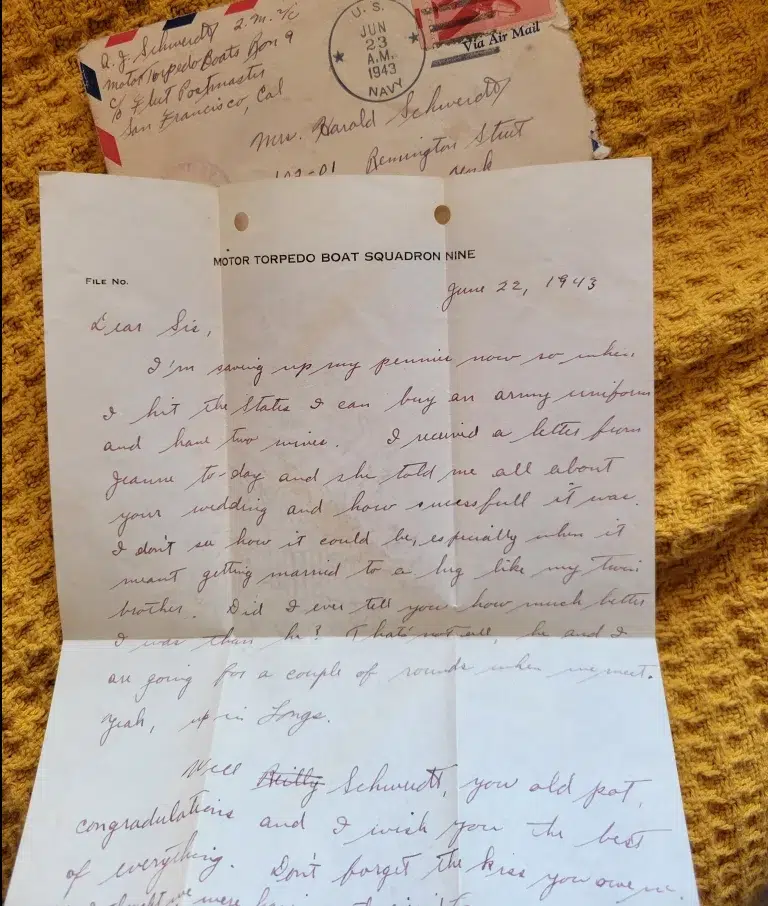 A. J. Schwerdt Q. M. 2/c
Motor Torpedo Boats Ron 9
c/o Fleet Postmaster
San Francisco, Cal
U. S.
JUN
23
A.M.
1943
NAVY
Via Air Mail
Mrs. Harold Schwerdt
Remington Street
York
MOTOR TORPEDO BOAT SQUADRON NINE
FILE No.
June 22, 1943
Dear Sis,
I'm saving up my pennies now so when
I hit the States I can buy an army uniform
and have two wives. I received a letter from
Jeanne to-day and she told me all about
your wedding and how sucessfull it was.
I don't see how it could be, especially when it
meant getting married to a lug like my twin
brother. Did I ever tell you how much better
I was than he? That's not all, he and I
are going for a couple of rounds when we meet.
Yeah, up in Longs.
Well Reilly Schwerdt, you old pot,
congradulations and I wish you the best
of everything. Don't forget the kiss you owe me.